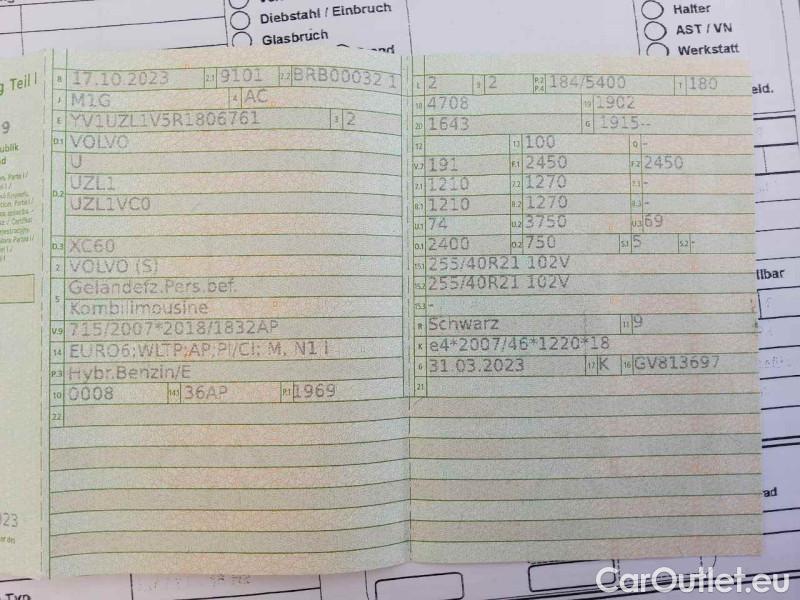 Diebstahl / Einbruch
Glasbruch
Halter
AST / VN
Werkstatt
g Teil I
B 17.10.2023 2.1 9101 2.2 BRB00032 1
J M1G 4 AC
E YV1UZL1V5R1806761 3 2
D.1 VOLVO
U
D.2 UZL1
UZL1VC0
D.3 XC60
2 VOLVO (S)
5 Geländefz.Pers.bef.
Kombilimousine
V.9 715/2007*2018/1832AP
14 EURO6;WLTP;AP;PI/CI; M, N1 I
P.3 Hybr.Benzin/E
10 0008 14.1 36AP P.1 1969
22
L 2 9 2 P.2 P.4 184/5400 T 180
18 4708 19 1902
20 1643 G 1915--
12 13 100 Q -
V.7 191 F.1 2450 F.2 2450
7.1 1210 7.2 1270 7.3 -
8.1 1210 8.2 1270 8.3 -
U.1 74 U.2 3750 U.3 69
O.1 2400 O.2 750 S.1 5 S.2 -
15.1 255/40R21 102V
15.2 255/40R21 102V
15.3 -
R Schwarz 11 9
K e4*2007/46*1220*18
6 31.03.2023 17 K 16 GV813697
21
eld.
llbar
CarOutlet.eu